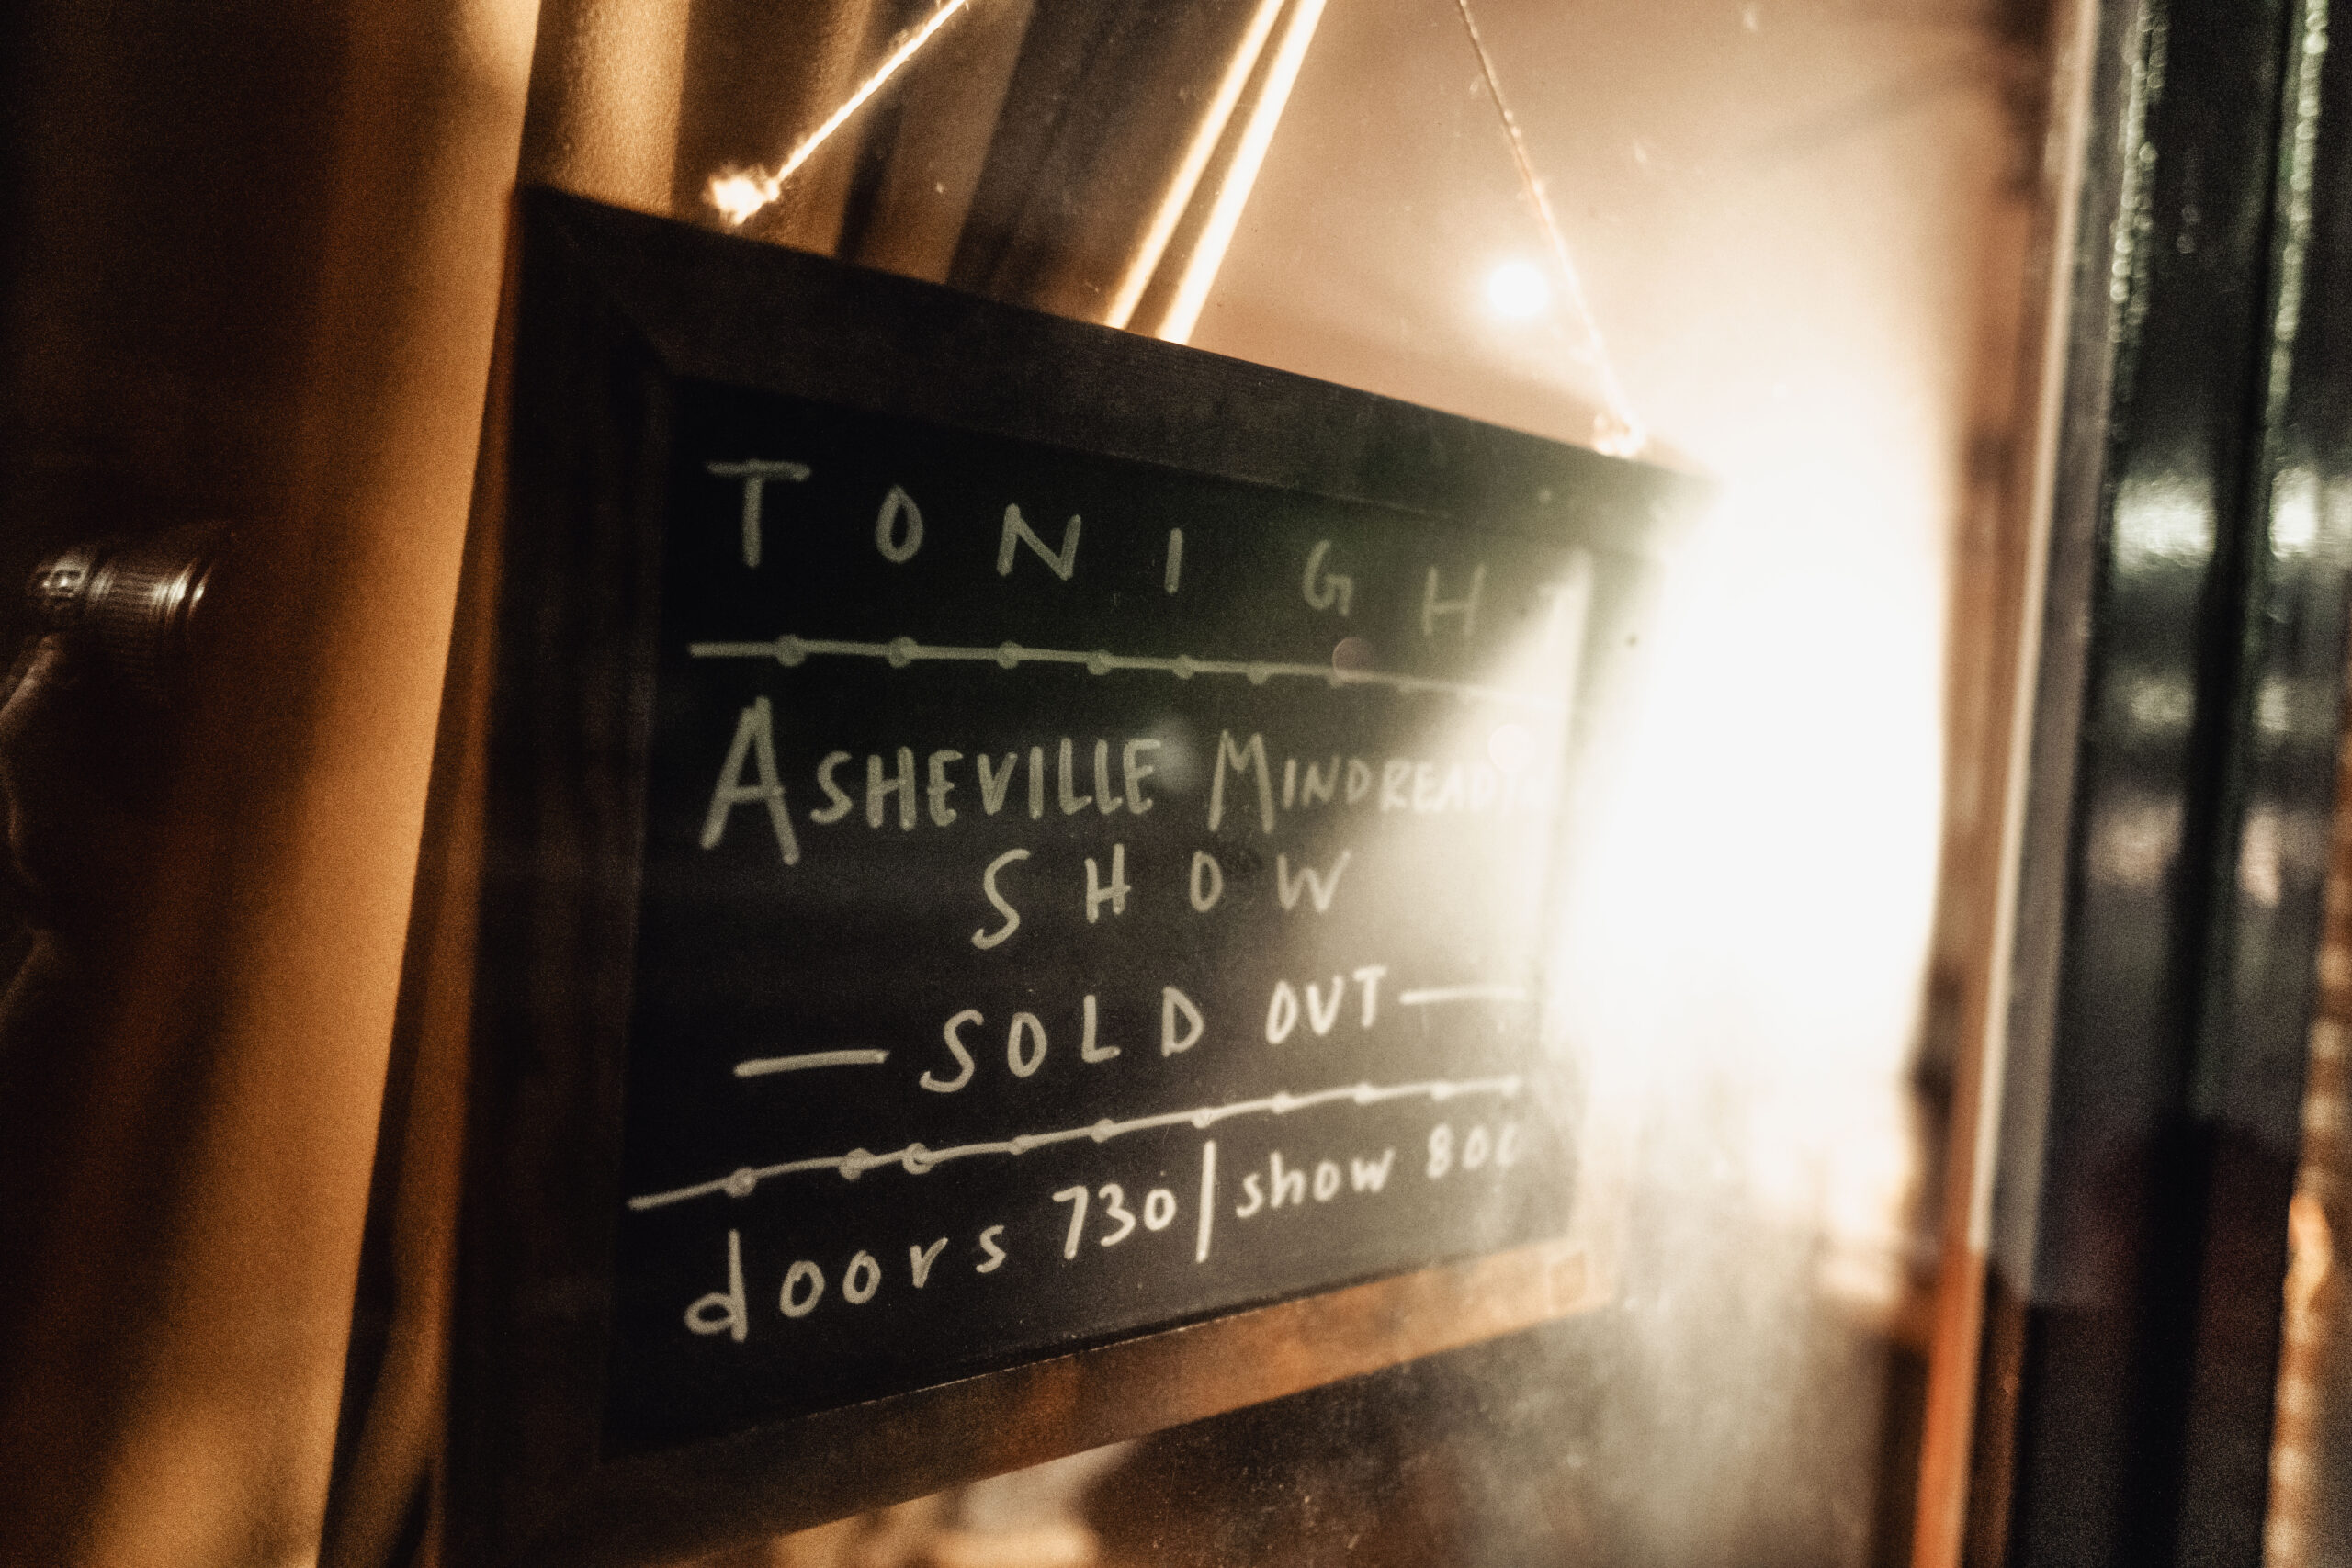 TONIGHT
ASHEVILLE MINDREADING
SHOW
— SOLD OUT —
doors 730 | show 800